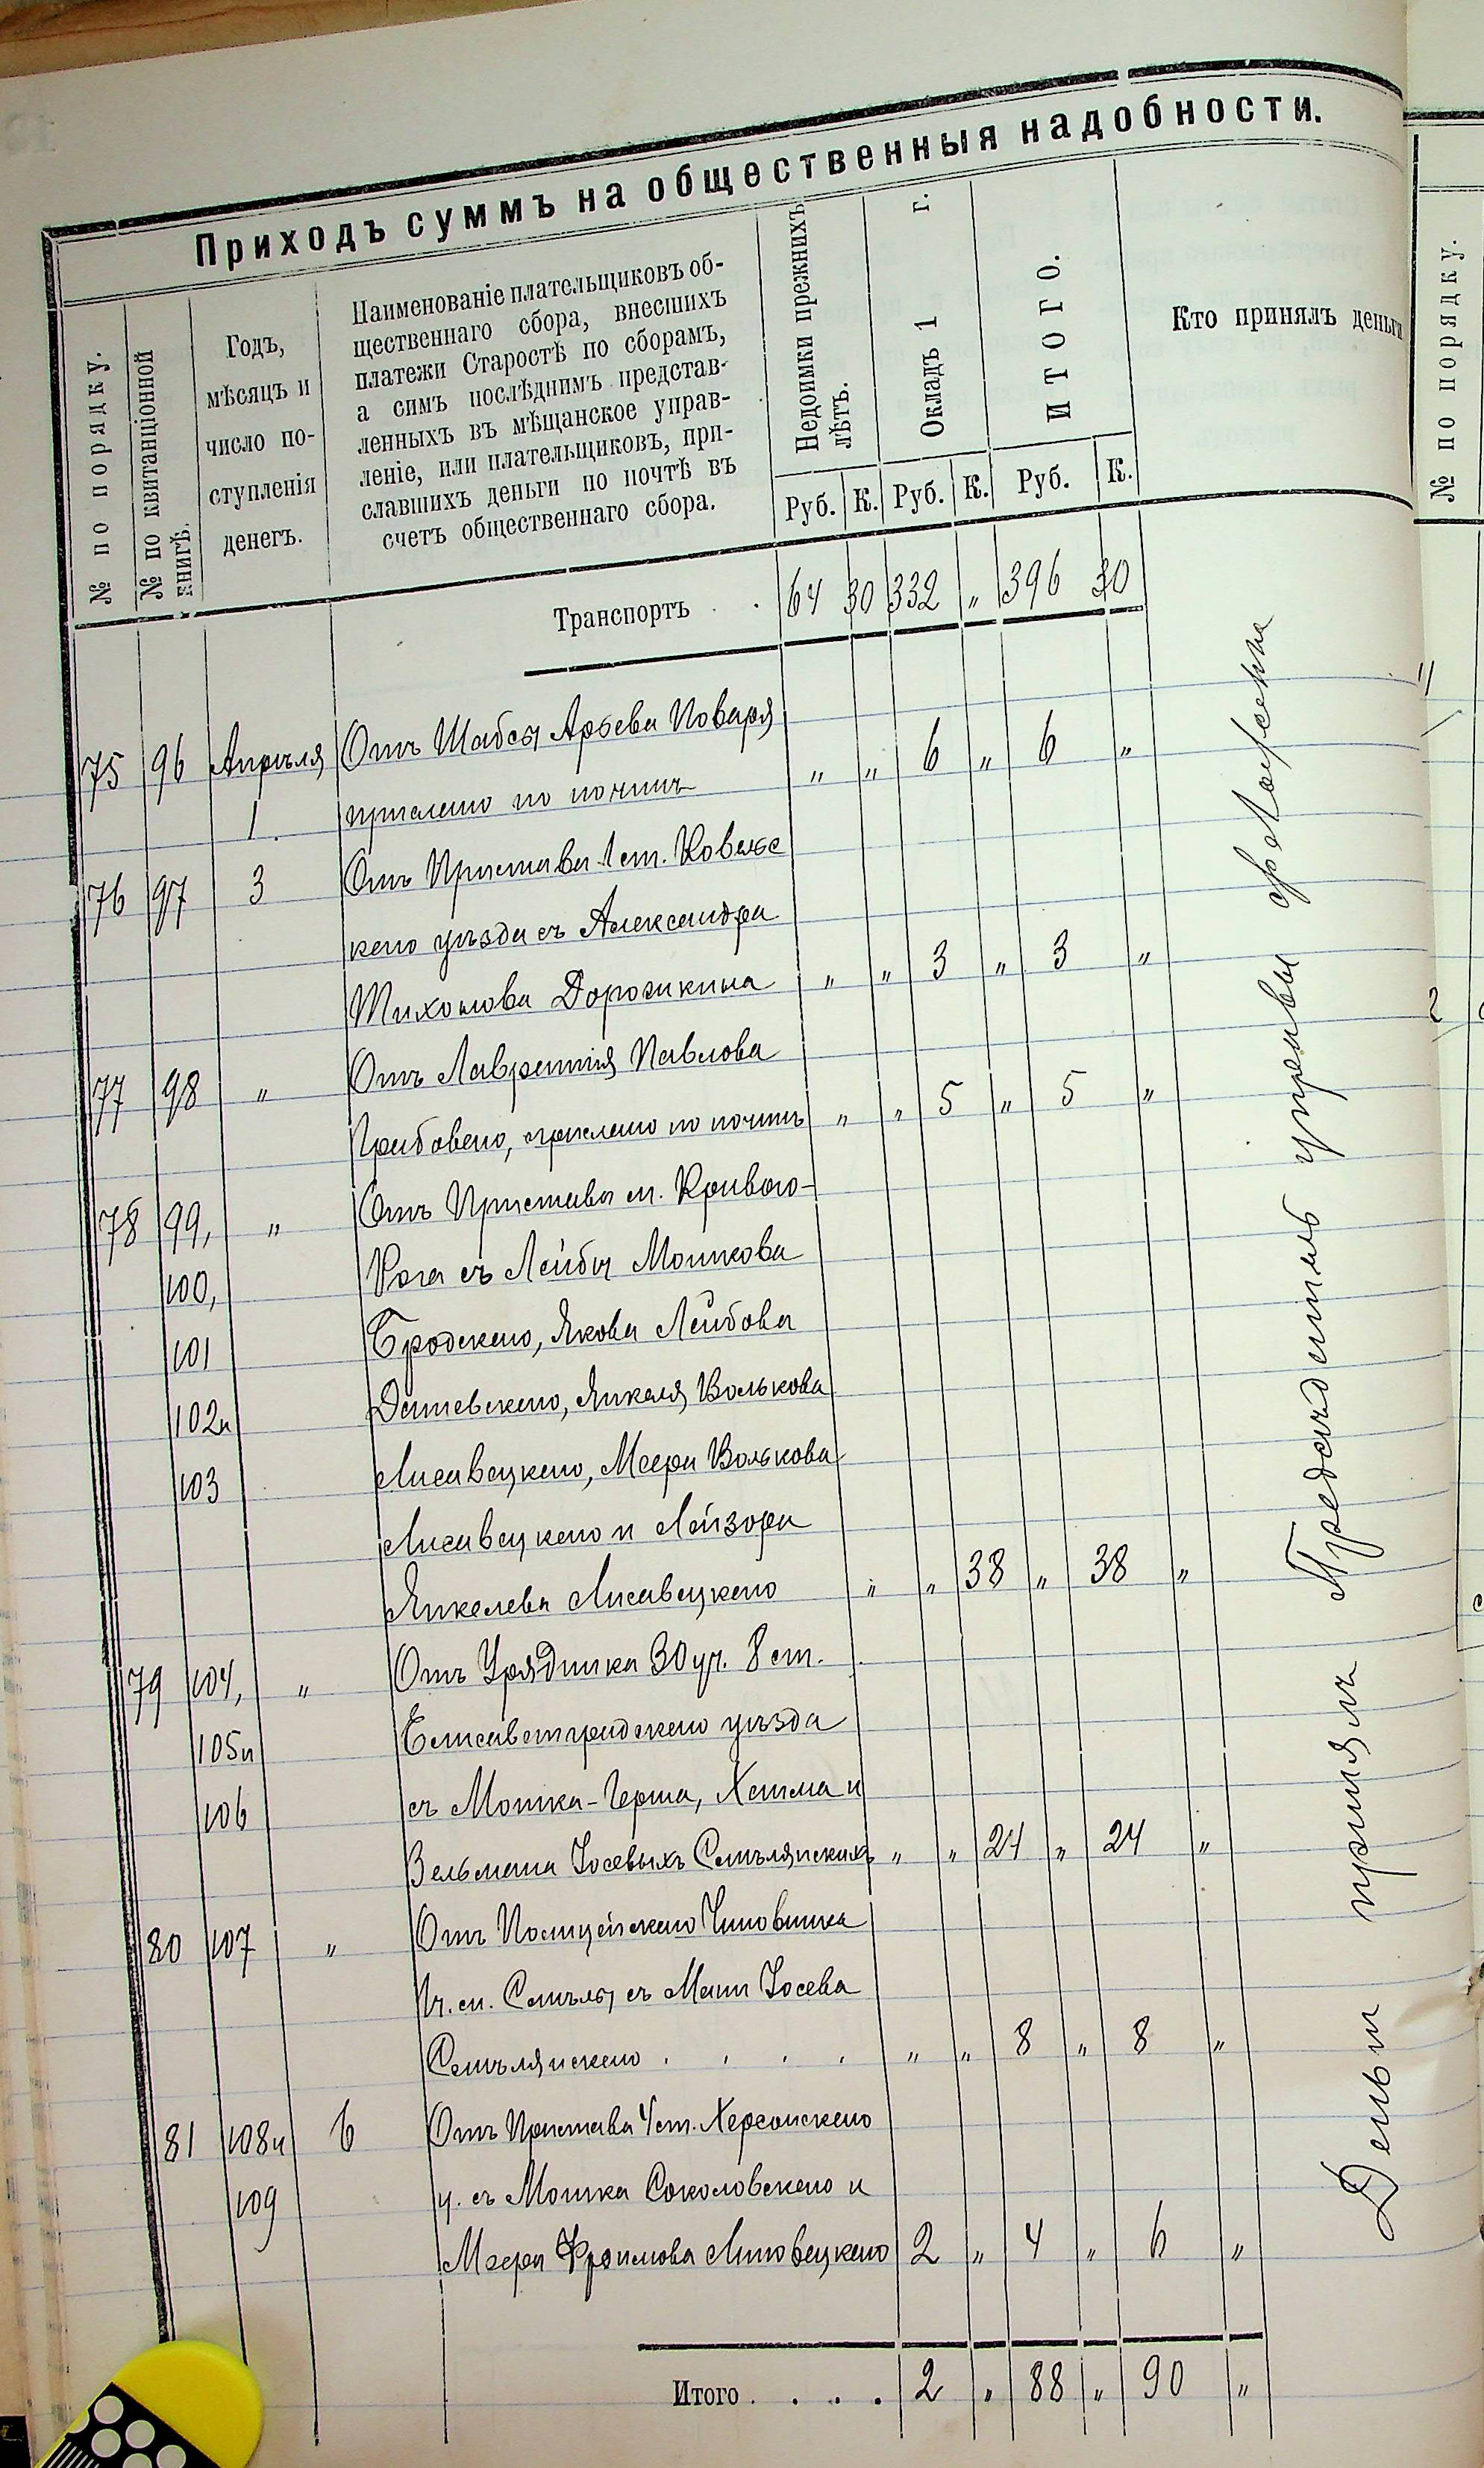 Приходъ суммъ на общественныя надобности.
№ по порядку.
№ по квитанціонной
книгѣ.
Годъ,
мѣсяцъ и
число по-
ступленія
денегъ.
Наименованіе плательщиковъ об-
щественнаго сбора, внесшихъ
платежи Старостѣ по сборамъ,
а симъ послѣднимъ представ-
ленныхъ въ мѣщанское управ-
леніе, или плательщиковъ, при-
славшихъ деньги по почтѣ въ
счетъ общественнаго сбора.
Недоимки прежнихъ
лѣтъ.
Окладъ 1 г.
ИТОГО.
Кто принялъ деньги
Руб. К. Руб. К. Руб. К.
Транспортъ . . 64 30 332 „ 396 30
75 96 Апрѣля Отъ Шабсы Арьева Поваря
1. прислано по почтѣ „ „ 6 „ 6 „
76 97 3 Отъ Пристава 1 ст. Ковельс
каго уѣзда съ Александра
Тихонова Дорожкина „ „ 3 „ 3 „
77 98 „ Отъ Лаврентія Павлова
Грабоваго, прислано по почтѣ „ „ 5 „ 5 „
78 99, „ Отъ Пристава м. Кривого-
100, Рога съ Лейбы Мошкова
101 Бродскаго, Якова Лейбова
102 и Дашевскаго, Янкеля Волькова
103 Лисавецкаго, Меера Волькова
Лисавецкаго и Лейзора
Янкелева Лисавецкаго „ „ 38 „ 38 „
79 104, „ Отъ Урядника 30 уч. 8 ст.
105 и Елисаветградскаго уѣзда
106 съ Мошка-Герша, Хаима и
Зельмана Іосевыхъ Смѣлянскихъ „ „ 24 „ 24 „
80 107 „ Отъ Полицейскаго Чиновника
1 ч. м. Смѣлы съ Мани Іосева
Смѣлянскаго . . . . „ „ 8 „ 8 „
81 108 и 6 Отъ Пристава 4 ст. Херсонскаго
109 у. съ Мошка Соколовскаго и
Меера Фроимова Липовецкаго 2 „ 4 „ 6 „
Итого . . . . 2 „ 88 „ 90 „
Деньги принялъ Предсѣдатель управы
№ по порядку.